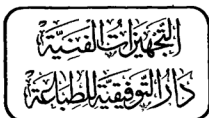 التَّجْهِيزَاتُ الفَنِّيَّة
دَارُ التَّوْفِيقِيَّةِ لِلطِّبَاعَة